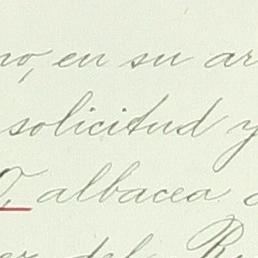 no, en su ar
solicitud y
albacea
del